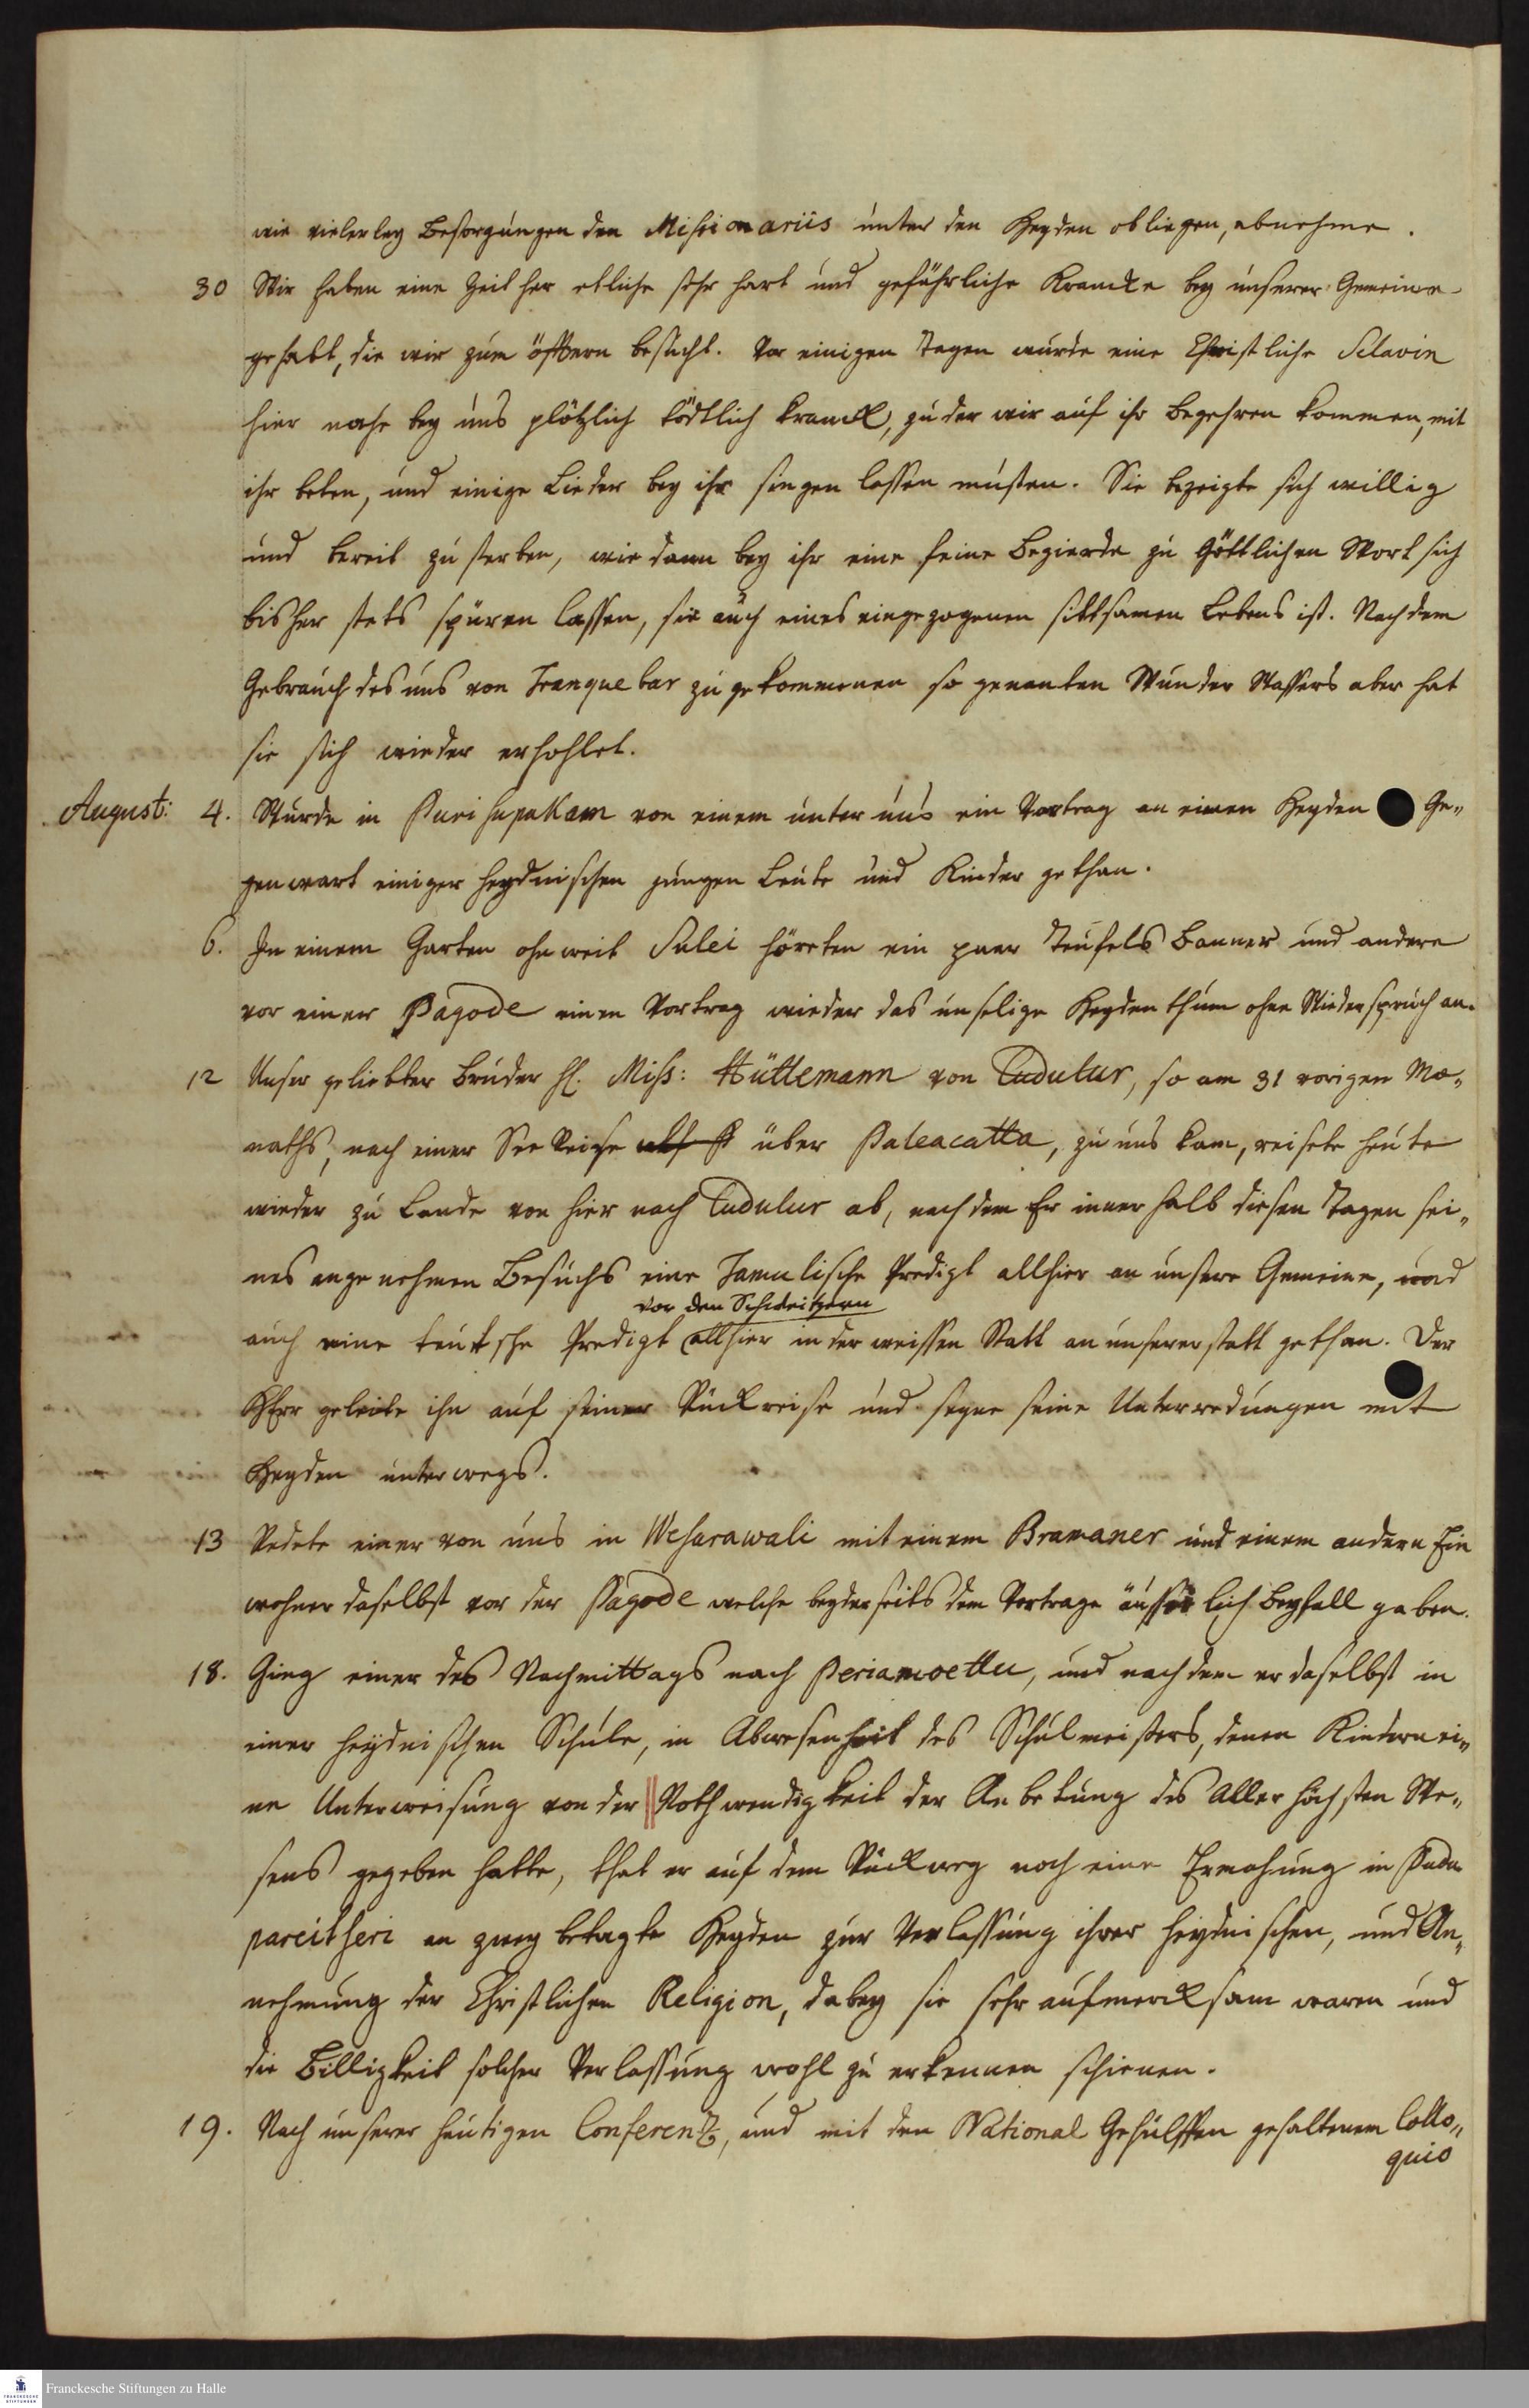 wie vielerley Besorgungen den Missionariis unter den Heyden obliegen, abnehme.
30 Wir haben eine Zeit her etliche sehr hart und gefährliche Krancke bey unserer Gemeine
gehabt, die wir zum öfftern besucht. Vor einigen Tagen wurde eine Christliche Sclavin
hier nahe bey uns plötzlich tödtlich kranck, zu der wir auf ihr Begehren kommen, mit
ihr beten, und einige Lieder bey ihr singen lassen musten. Sie bezeigte sich willig
und bereit zu sterben, wie dann bey ihr eine feine Begierde zu Göttlichen Wort sich
bisher stets spüren lassen, sie auch eines eingezogenen sittsamen Lebens ist. Nach dem
Gebrauch des uns von Tranquebar zu gekommenen so genanten Wunder Wassers aber hat
sie sich wieder erhohlet.
August: 4. Wurde in Purisupakam von einem unter uns ein Vortrag an einen Heyden Ge„
genwart einiger heydnischen jungen Leute und Kinder gethan.
6. In einem Garten ohnweit Sulei höreten ein paar Teufels Banner und andere
vor einer Pagode einen Vortrag wieder das unselige Heydenthum ohne Wiederspruch an.
12 Unser geliebter Bruder H. Miss: Hüttemann von Cudulur, so am 31 vorigen Mo„
naths, nach einer See Reise über Paleacatta, zu uns kam, reisete heute
wieder zu Lande von hier nach Cudulur ab, nach dem Er innerhalb diesen Tagen sei„
nes angenehmen Besuchs eine Tamulische Predigt allhier an unsere Gemeine, und
vor den Schweitzern
auch eine teutsche Predigt allhier in der weissen Statt an unserer statt gethan. Der
HErr geleite ihn auf seiner Rückreise und segne seine Unterredungen mit
Heyden unterwegs.
13 Redete einer von uns in Wesarawali mit einem Bramaner und einem andern Ein
wohner daselbst vor der Pagode welche beyderseits dem Vortrage äusserlich Beyfall gaben.
18. Gieng einer des Nachmittags nach Periamoettu, und nach dem er daselbst in
einer heydnischen Schule, in Abwesenheit des Schulmeisters, denen Kindern ei„
ne Unterweisung von der Nothwendigkeit der Anbetung des Allerhöchsten We„
sens gegeben hatte, that er auf dem Rückweg noch eine Ermahnung in Pudu
pareitseri an zwey betagte Heyden zur Verlassung ihrer heydnischen, und An„
nehmung der Christlichen Religion, dabey sie sehr aufmercksam waren und
die Billigkeit solcher Verlassung wohl zu erkennen schienen.
19. Nach unserer heutigen Conferentz, und mit den National Gehülffen gehaltenem Collo„
quio
FRANCKESCHE STIFTUNGEN
Franckesche Stiftungen zu Halle